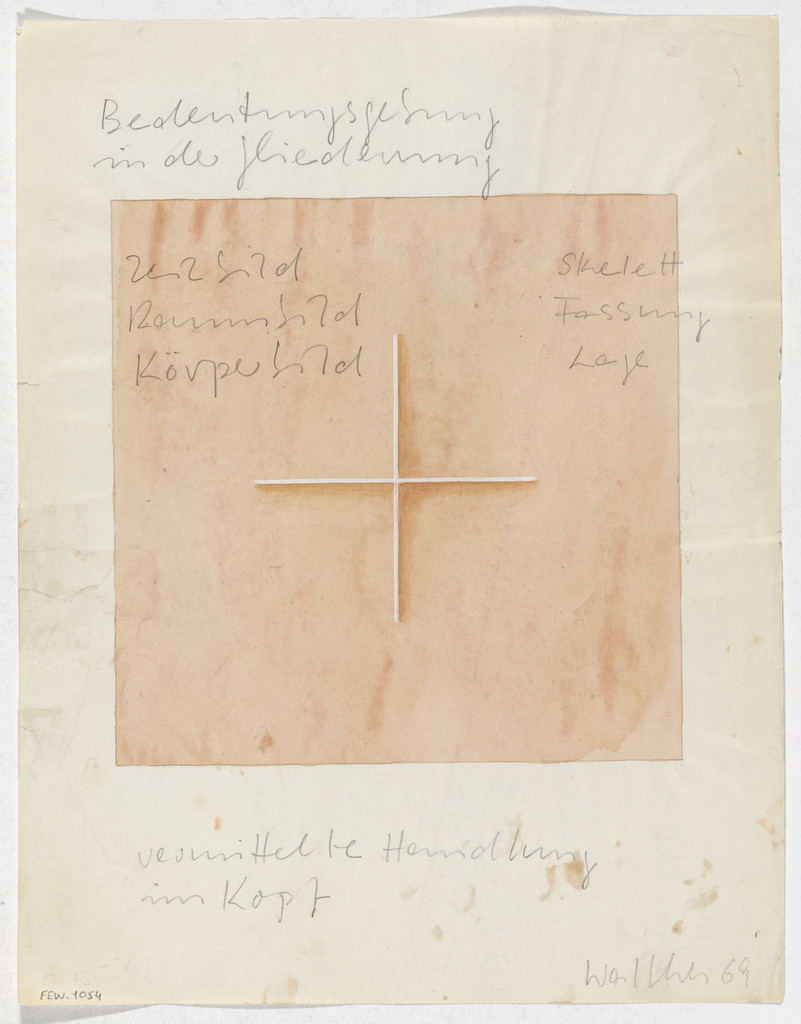 Bedeutungsgebung
in der Gliederung
Zeitbild
Skelett
Raumbild
Fassung
Körperbild
Lage
vermittelte Handlung
im Kopf
Walther 69
FEW-1054